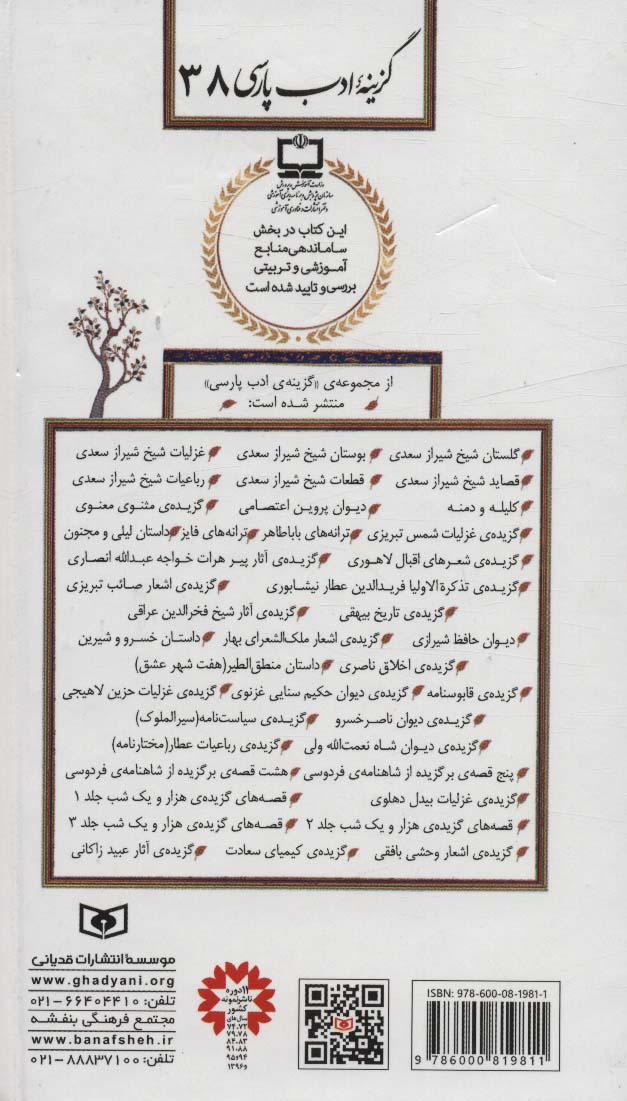 گزینهٔ ادب پارسی ۳۸
وزارت آموزش و پرورش
سازمان پژوهش و برنامه‌ریزی آموزشی
دفتر انتشارات و فناوری آموزشی
این کتاب در بخش
ساماندهی منابع
آموزشی و تربیتی
بررسی و تایید شده است
از مجموعه‌ی «گزینه‌ی ادب پارسی»
منتشر شده است:
گلستان شیخ شیراز سعدی بوستان شیخ شیراز سعدی غزلیات شیخ شیراز سعدی
قصاید شیخ شیراز سعدی قطعات شیخ شیراز سعدی رباعیات شیخ شیراز سعدی
کلیله و دمنه دیوان پروین اعتصامی گزیده‌ی مثنوی معنوی
گزیده‌ی غزلیات شمس تبریزی ترانه‌های باباطاهر ترانه‌های فایز داستان لیلی و مجنون
گزیده‌ی شعرهای اقبال لاهوری گزیده‌ی آثار پیر هرات خواجه عبدالله انصاری
گزیده‌ی تذکرة الاولیا فریدالدین عطار نیشابوری گزیده‌ی اشعار صائب تبریزی
گزیده‌ی تاریخ بیهقی گزیده‌ی آثار شیخ فخرالدین عراقی
دیوان حافظ شیرازی گزیده‌ی اشعار ملک‌الشعرای بهار داستان خسرو و شیرین
گزیده‌ی اخلاق ناصری داستان منطق‌الطیر(هفت شهر عشق)
گزیده‌ی قابوسنامه گزیده‌ی دیوان حکیم سنایی غزنوی گزیده‌ی غزلیات حزین لاهیجی
گزیده‌ی دیوان ناصرخسرو گزیده‌ی سیاست‌نامه(سیرالملوک)
گزیده‌ی دیوان شاه نعمت‌الله ولی گزیده‌ی رباعیات عطار(مختارنامه)
پنج قصه‌ی برگزیده از شاهنامه‌ی فردوسی هشت قصه‌ی برگزیده از شاهنامه‌ی فردوسی
گزیده‌ی غزلیات بیدل دهلوی قصه‌های گزیده‌ی هزار و یک شب جلد ۱
قصه‌های گزیده‌ی هزار و یک شب جلد ۲ قصه‌های گزیده‌ی هزار و یک شب جلد ۳
گزیده‌ی اشعار وحشی بافقی گزیده‌ی کیمیای سعادت گزیده‌ی آثار عبید زاکانی
موسسهٔ انتشارات قدیانی
www.ghadyani.org
تلفن: ۶۶۴۰۴۴۱۰-۰۲۱
مجتمع فرهنگی بنفشه
www.banafsheh.ir
تلفن: ۸۸۸۳۷۱۰۰-۰۲۱
۱۱ دوره
ناشر نمونه
کشور
سال‌های
۷۴.۷۲
۷۹.۷۸
۸۴.۸۳
۹۱.۸۸
۹۵.۹۴
و ۱۳۹۶
ISBN: 978-600-08-1981-1
9 786000 819811